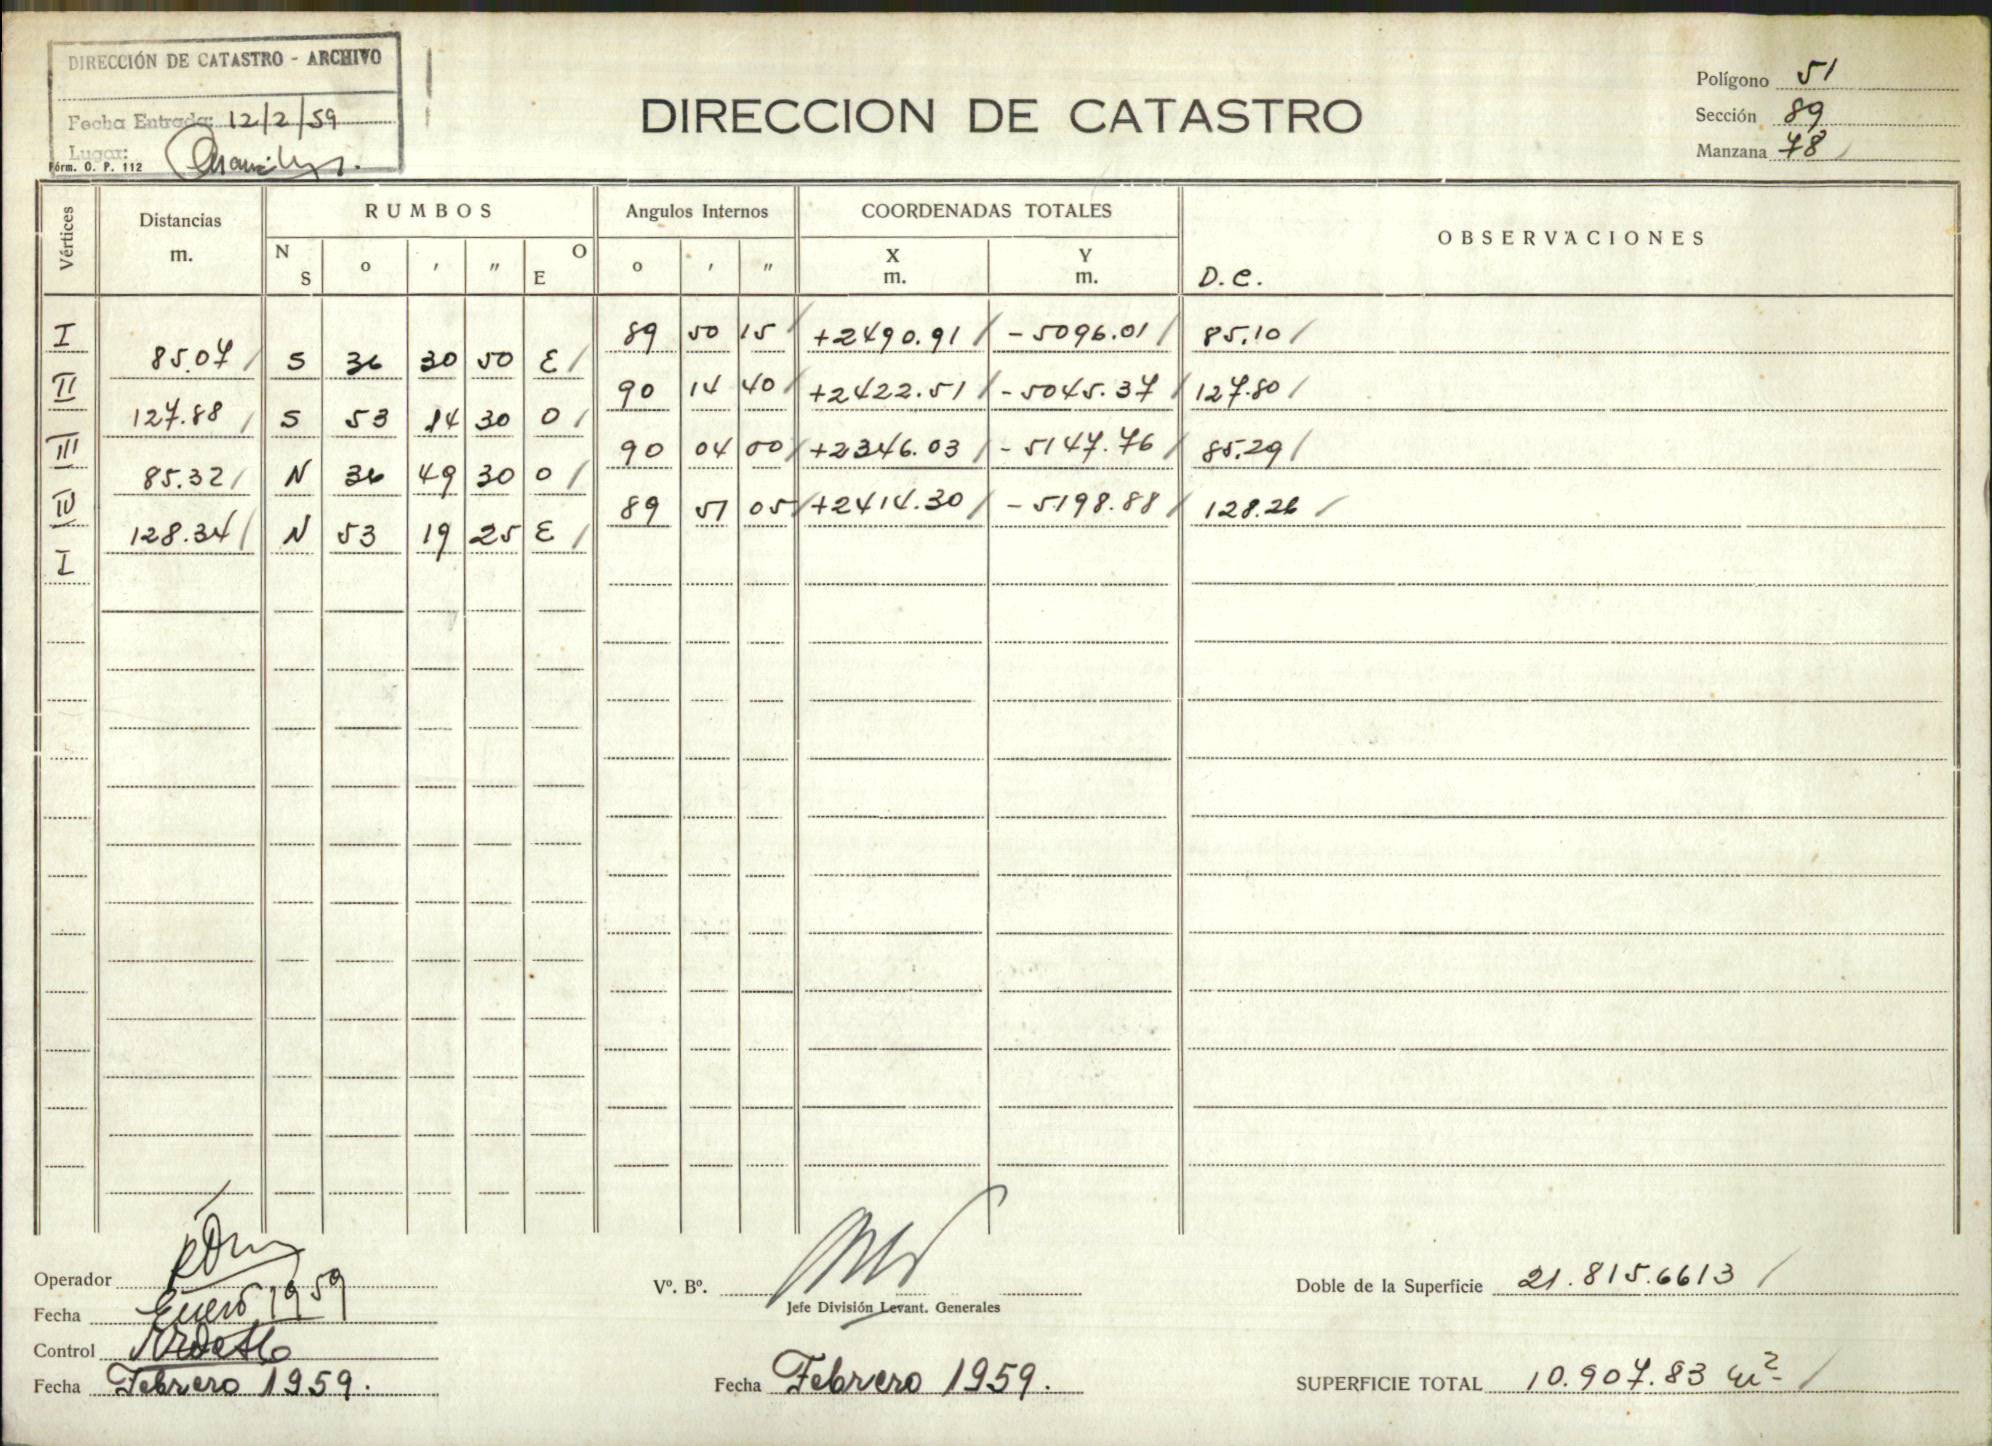 DIRECCIÓN DE CATASTRO - ARCHIVO
Fecha Entrada: 12/2/59
Lugar:
Fórm. O. P. 112
DIRECCION DE CATASTRO
Polígono 51
Sección 89
Manzana 78
Vértices Distancias m. RUMBOS Angulos Internos COORDENADAS TOTALES OBSERVACIONES
N S o ' " O E o ' " X m. Y m. D.C.
I 89 50 15 / +2490.91 / -5096.01 / 85.10 /
85.07 / S 36 30 50 E /
II 90 14 40 / +2422.51 / -5045.37 / 127.80 /
127.88 / S 53 14 30 O /
III 90 04 00 / +2346.03 / -5147.76 / 85.29 /
85.32 / N 36 49 30 O /
IV 89 51 05 / +2414.30 / -5198.88 / 128.26 /
128.34 / N 53 19 25 E /
I
Operador
Fecha Enero 1959
Control
Fecha Febrero 1959.
Vº. Bº.
Jefe División Levant. Generales
Fecha Febrero 1959.
Doble de la Superficie 21.815.6613 /
SUPERFICIE TOTAL 10.907.83 m² /